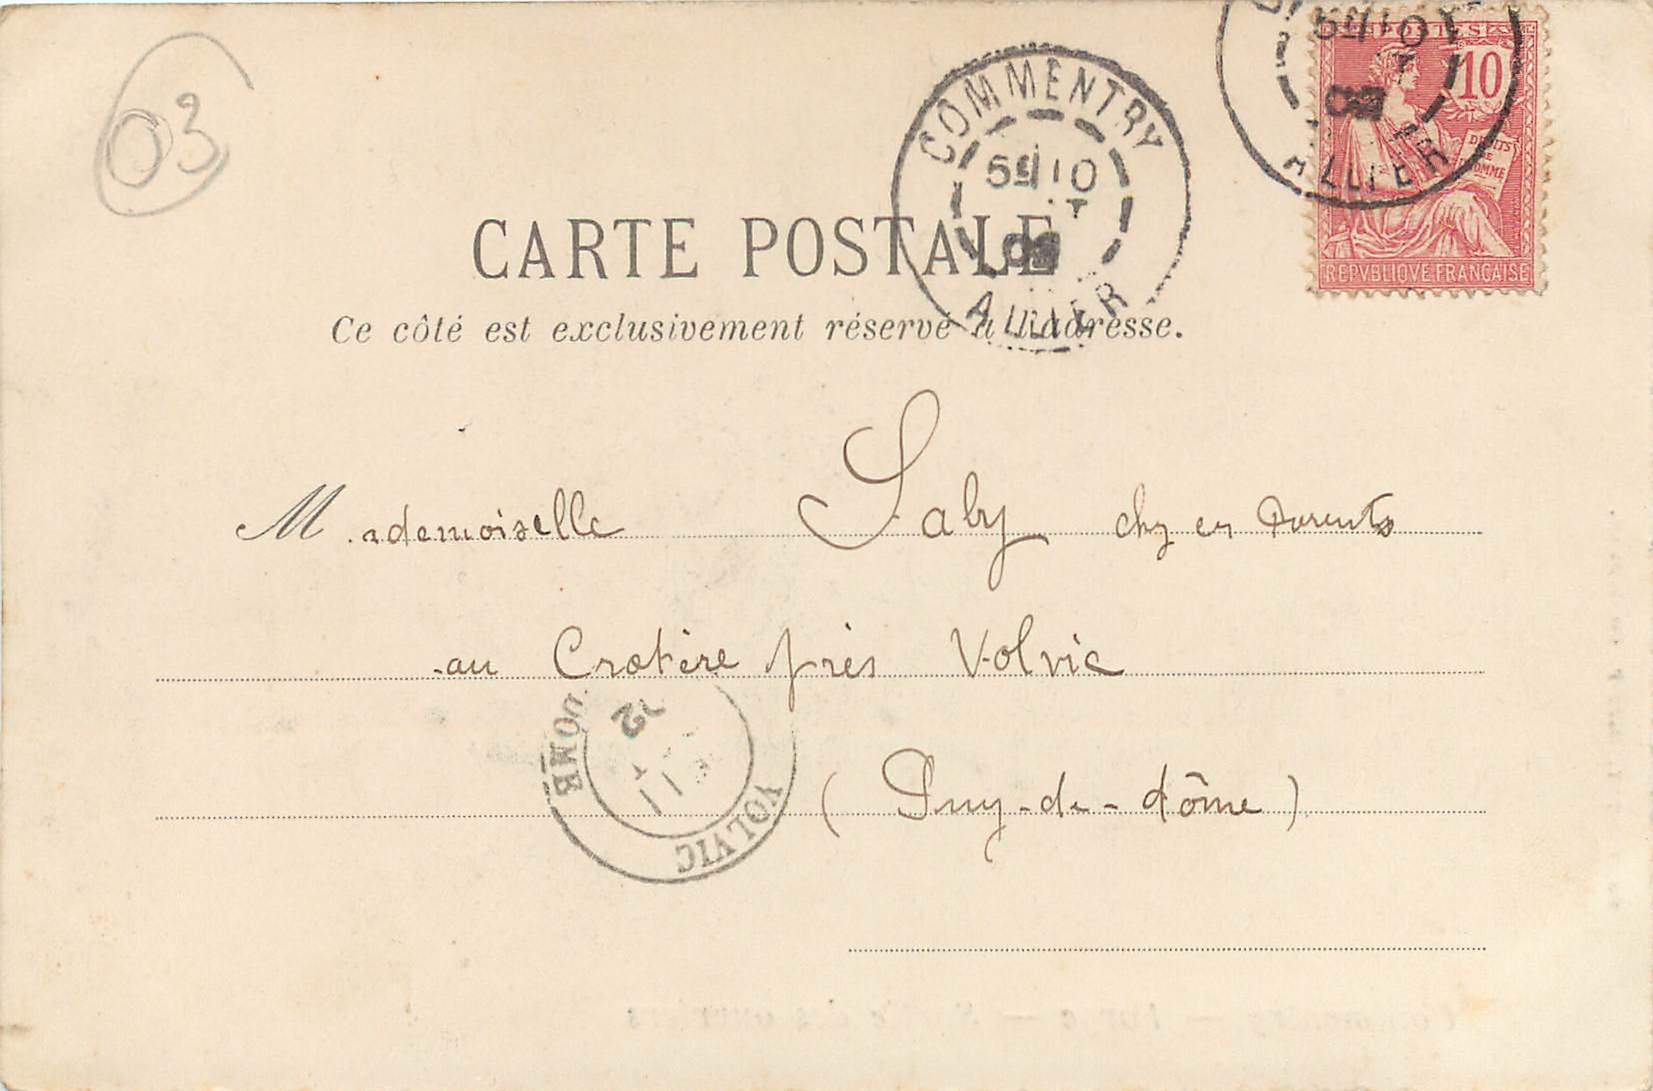 03
POSTES
10
DROITS
DE
HOMME
REPVBLIQVE FRANÇAISE
ALLIER
COMMENTRY
10
ALLIER
CARTE POSTALE
Ce côté est exclusivement réservé à l'adresse.
Mademoiselle Saby chez ses Parents
au Cratère près Volvic
(Puy-de-dôme)
VOLVIC
11